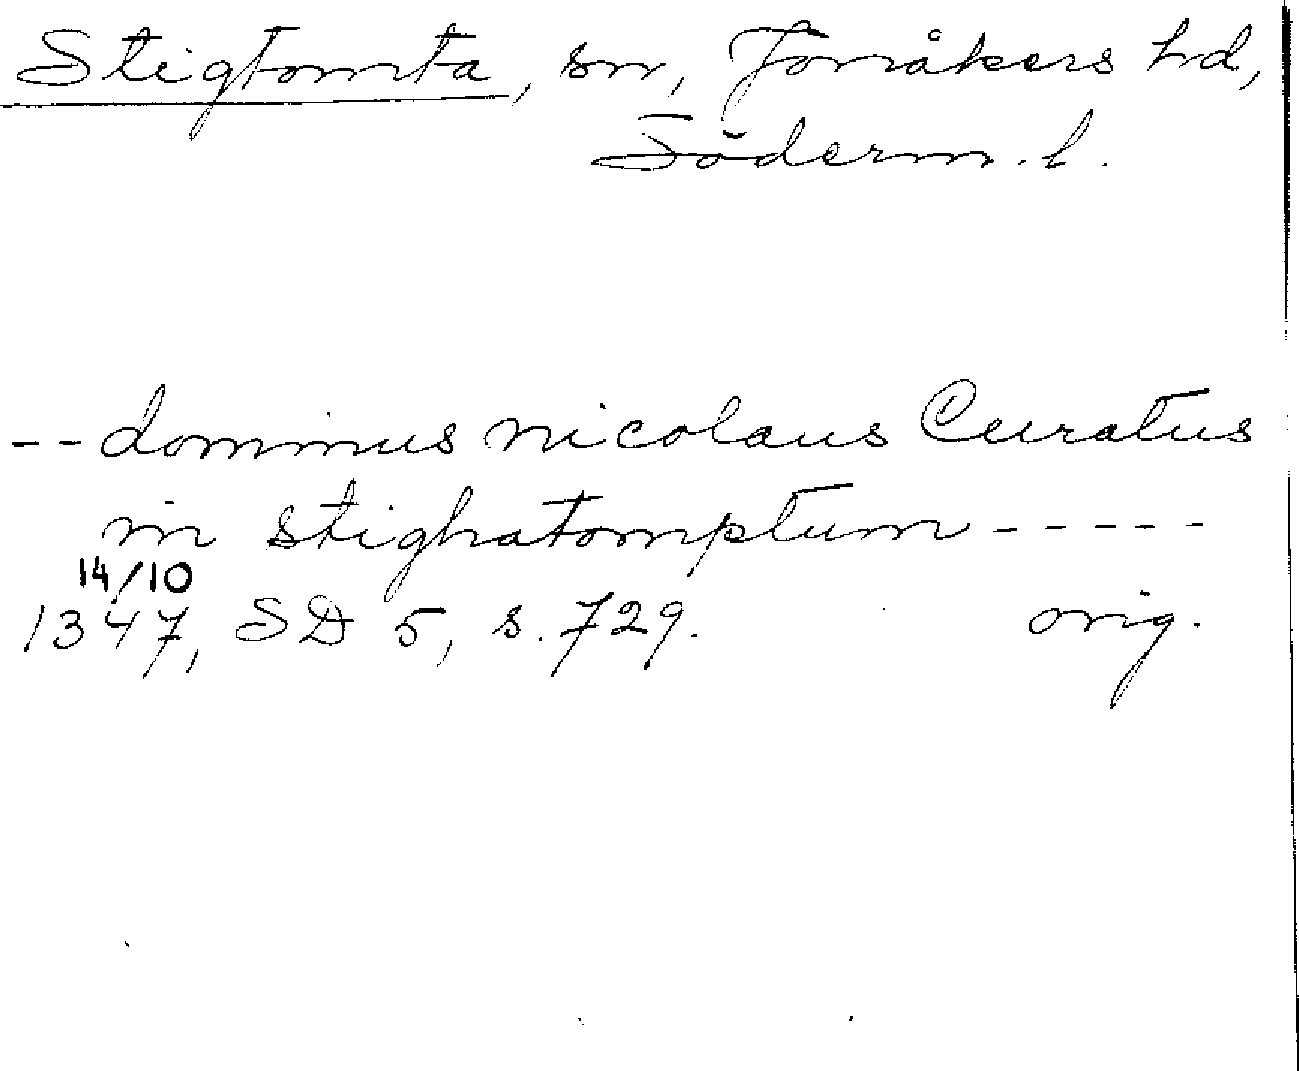 Stigtomta, sn, Jönåkers hd,
Söderm. l.
-- dominus nicolaus Curatus
in stighatomptum -----
14/10
1347, SD 5, s. 729. orig.